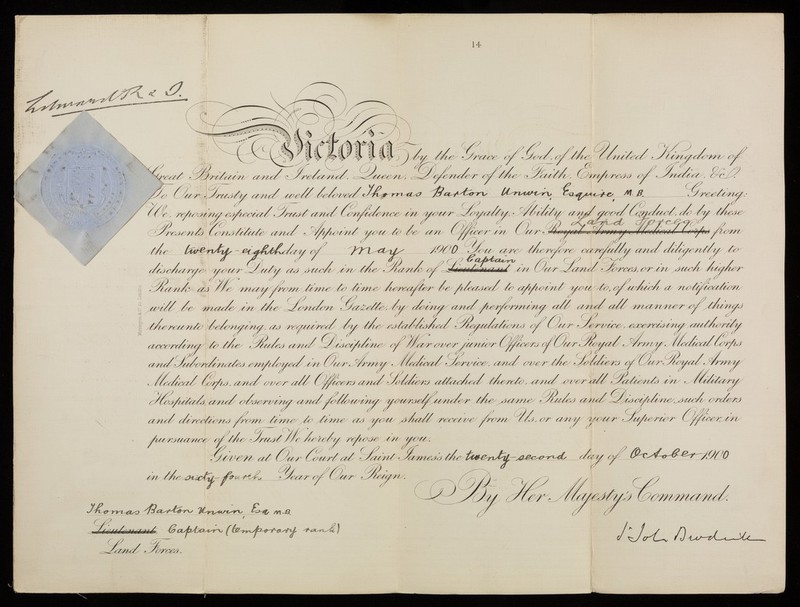 14
Edward R & I.
Victoria, by the Grace of God, of the United Kingdom of
Great Britain and Ireland, Queen, Defender of the Faith, Empress of India, &c.
To Our Trusty and well beloved Thomas Barton Unwin, Esquire, M.B. Greeting:
We, reposing especial Trust and Confidence in your Loyalty, Ability and good Conduct, do by these
Land Forces
Presents Constitute and Appoint you to be an Officer in Our Royal Army Medical Corps from
the twenty-eighth day of May 1900. You are therefore carefully and diligently to
Captain
discharge your Duty as such in the Rank of Lieutenant in Our Land Forces, or in such higher
Rank as We may from time to time hereafter be pleased to appoint you to, of which a notification
will be made in the London Gazette, by doing and performing all and all manner of things
thereunto belonging, as required by the established Regulations of Our Service, exercising authority
according to the Rules and Discipline of War over junior Officers of Our Royal Army Medical Corps
and Subordinates employed in Our Army Medical Service, and over the Soldiers of Our Royal Army
Medical Corps, and over all Officers and Soldiers attached thereto, and over all Patients in Military
Hospitals, and observing and following yourself under the same Rules and Discipline, such orders
and directions from time to time as you shall receive from Us, or any your Superior Officer, in
pursuance of the Trust We hereby repose in you.
Given at Our Court at Saint James's the twenty-second day of October 1900
in the sixty-fourth Year of Our Reign.
By Her Majesty's Command.
Thomas Barton Unwin, Esq M.B.
Lieutenant Captain (temporary rank)
Land Forces.
St John Brodrick